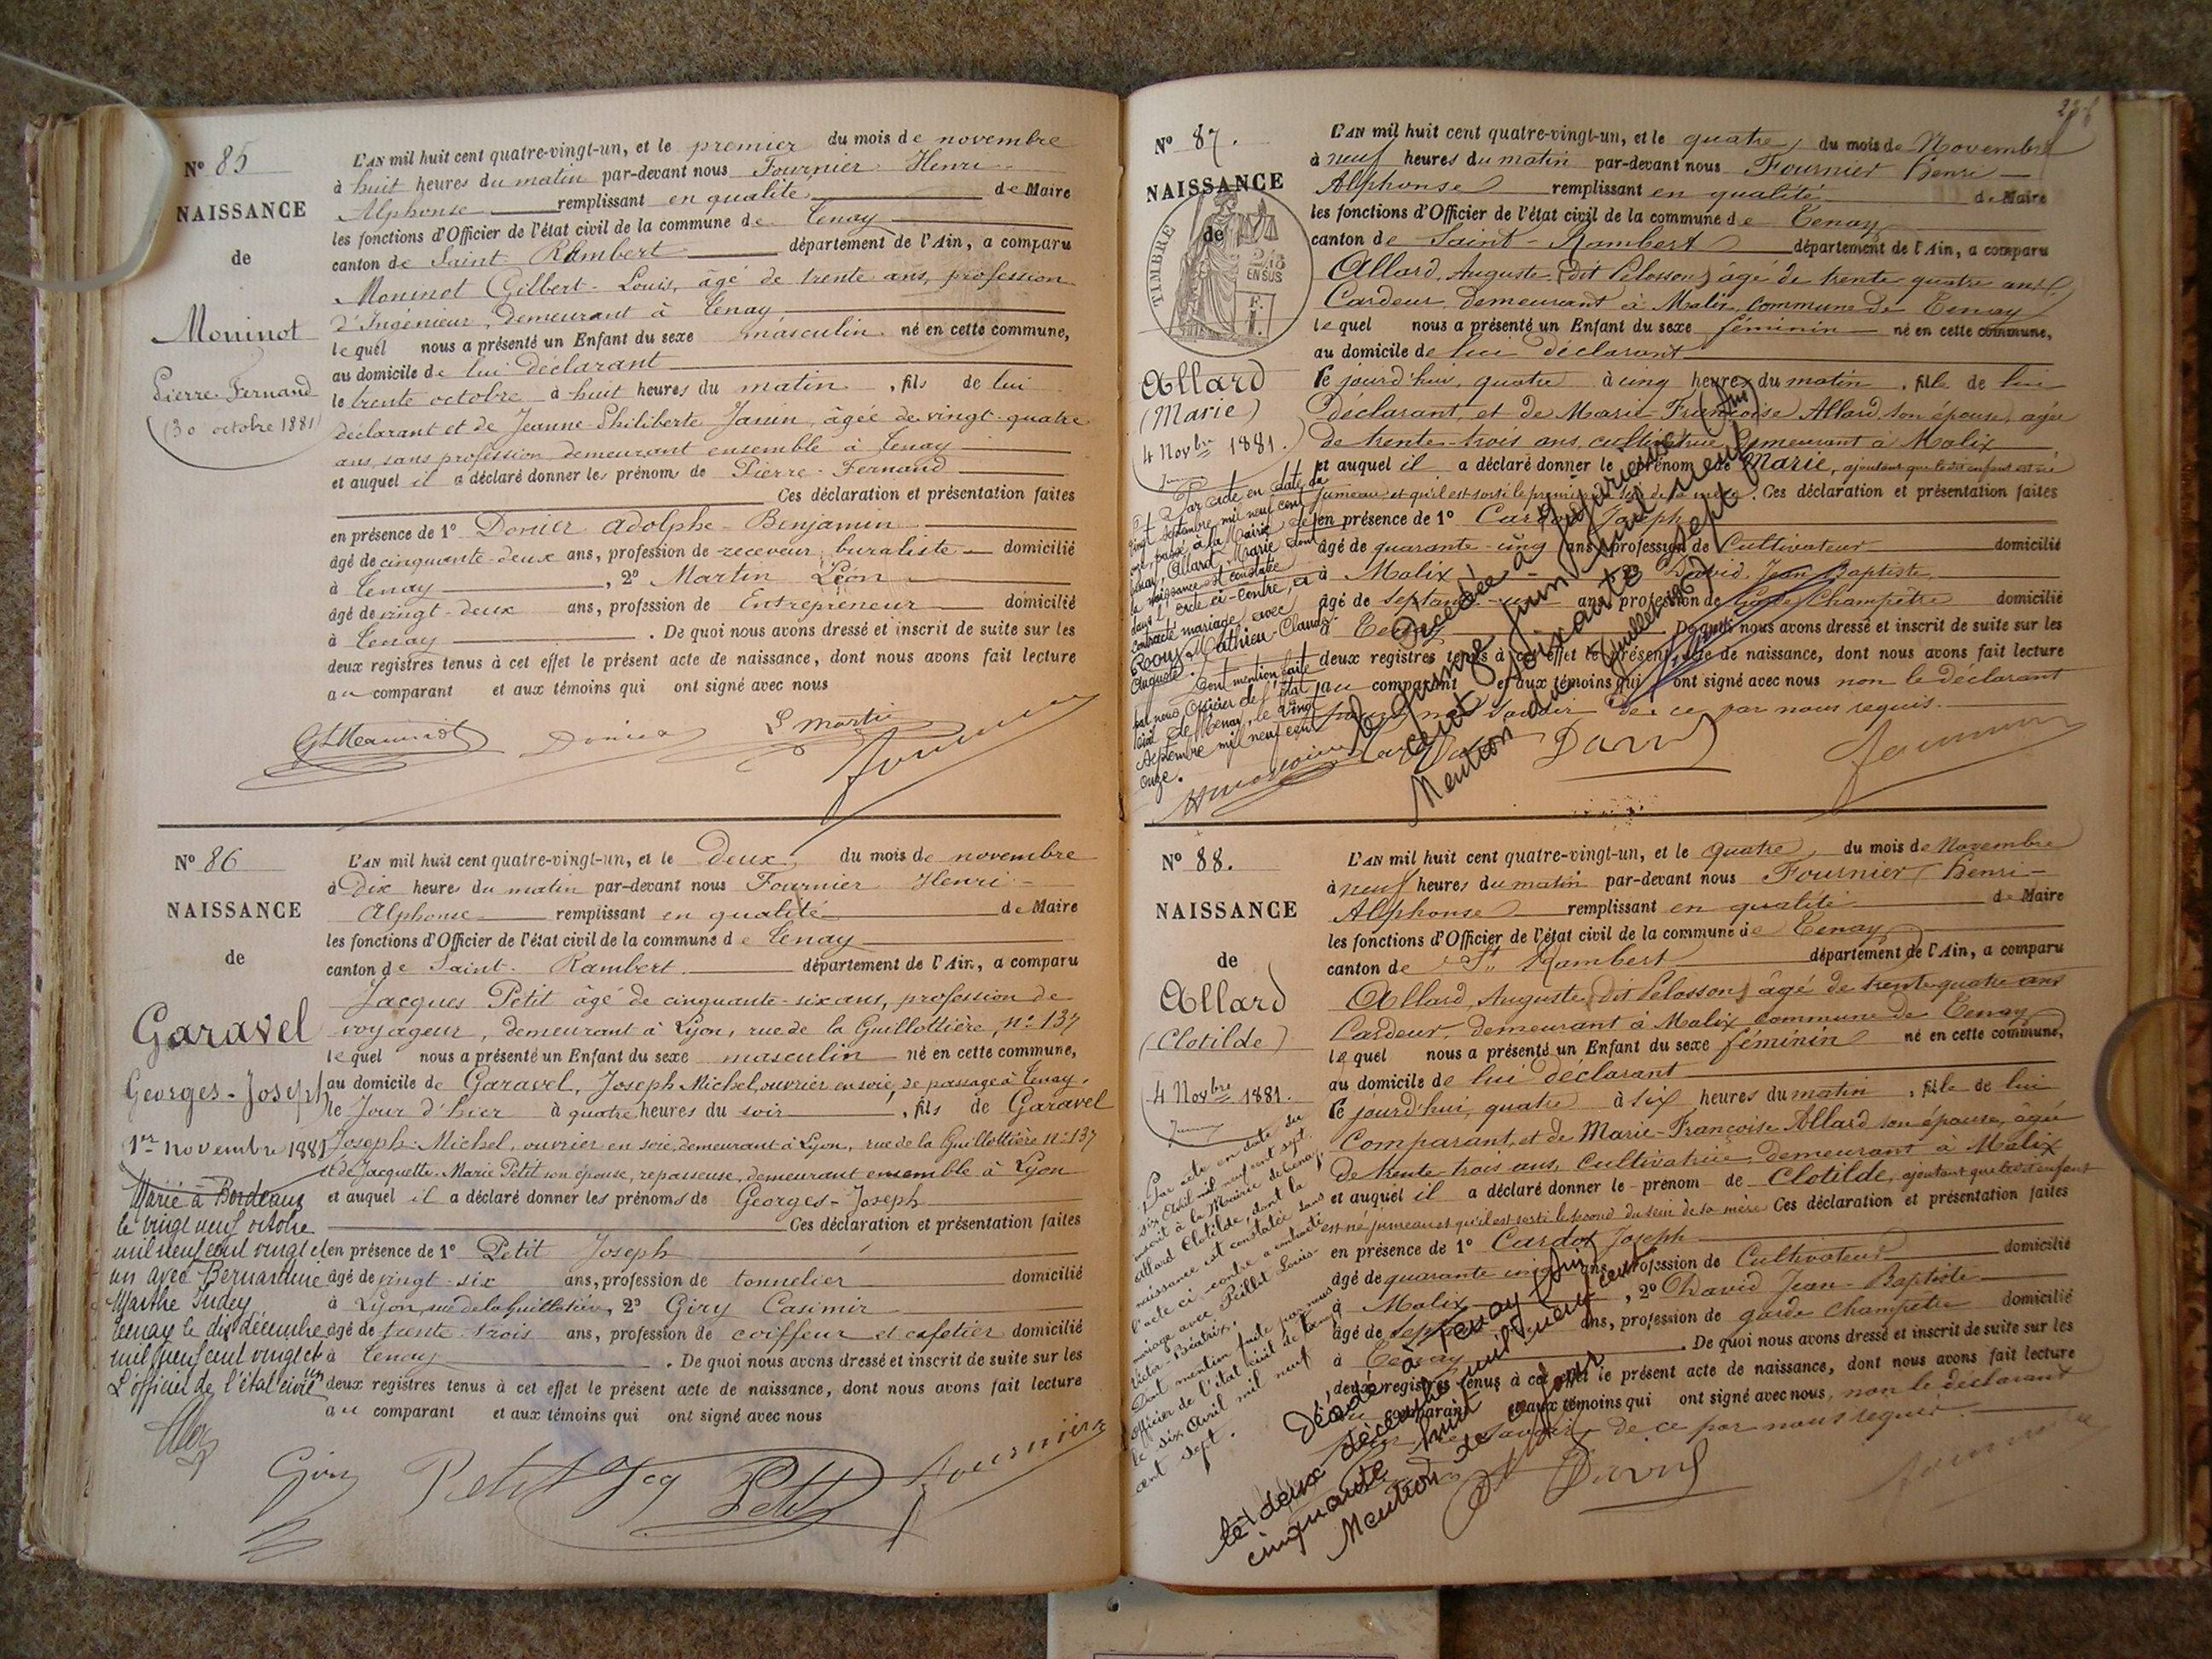 N° 85
NAISSANCE
de
Moninot
Pierre-Fernand
(30 octobre 1881)
L'AN mil huit cent quatre-vingt-un, et le premier du mois de novembre
à huit heures du matin par-devant nous Fournier Henri
Alphonse remplissant en qualité de Maire
les fonctions d'Officier de l'état civil de la commune de Tenay
canton de Saint Rambert département de l'Ain, a comparu
Moninot Gilbert-Louis, âgé de trente ans, profession
d'Ingénieur, demeurant à Tenay
lequel nous a présenté un Enfant du sexe masculin né en cette commune,
au domicile de lui déclarant
le trente octobre à huit heures du matin, fils de lui
déclarant et de Jeanne-Philiberte Janin, âgée de vingt-quatre
ans, sans profession demeurant ensemble à Tenay
et auquel il a déclaré donner les prénoms de Pierre-Fernand
Ces déclaration et présentation faites
en présence de 1° Donier Adolphe-Benjamin
âgé de cinquante-deux ans, profession de receveur buraliste domicilié
à Tenay, 2° Martin Léon
âgé de vingt-deux ans, profession de Entrepreneur domicilié
à Tenay. De quoi nous avons dressé et inscrit de suite sur les
deux registres tenus à cet effet le présent acte de naissance, dont nous avons fait lecture
au comparant et aux témoins qui ont signé avec nous
Donier
L Martin
Fournier
N° 86
NAISSANCE
de
Garavel
Georges-Joseph
1er novembre 1881
Marié à Bordeaux
le vingt neuf octobre
mil neuf cent vingt et
un avec Bernardine
Marthe Judey
Tenay le dix décembre
mil neuf cent vingt et un
L'officier de l'état civil
L'AN mil huit cent quatre-vingt-un, et le Deux du mois de novembre
à Dix heures du matin par-devant nous Fournier Henri-
Alphonse remplissant en qualité de Maire
les fonctions d'Officier de l'état civil de la commune de Tenay
canton de Saint-Rambert département de l'Ain, a comparu
Jacques Petit âgé de cinquante-six ans, profession de
voyageur, demeurant à Lyon, rue de la Guillottière, n° 137
lequel nous a présenté un Enfant du sexe masculin né en cette commune,
au domicile de Garavel, Joseph Michel, ouvrier en soie, de passage à Tenay,
le Jour d'hier à quatre heures du soir, fils de Garavel
Joseph-Michel, ouvrier en soie, demeurant à Lyon, rue de la Guillottière n° 137
et de Jacquette-Marie Petit son épouse, repasseuse, demeurant ensemble à Lyon
et auquel il a déclaré donner les prénoms de Georges-Joseph
Ces déclaration et présentation faites
en présence de 1° Petit Joseph
âgé de vingt-six ans, profession de tonnelier domicilié
à Lyon, rue de la Guillotière, 2° Giry Casimir
âgé de trente-trois ans, profession de coiffeur et cafetier domicilié
à Tenay. De quoi nous avons dressé et inscrit de suite sur les
deux registres tenus à cet effet le présent acte de naissance, dont nous avons fait lecture
au comparant et aux témoins qui ont signé avec nous
Giry Petit Jcq Petit Fournier
N° 87.
NAISSANCE
de
TIMBRE
EN SUS
Allard
(Marie)
4 Novbre 1881.
Par acte en date du
vingt septembre mil neuf cent
onze, passé à la Mairie de
Tenay, Allard Marie dont
la naissance est constatée
dans l'acte ci-contre, a
contracté mariage avec
Roux Mathieu-Claude-
Auguste.
Dont mention faite
par nous Officier de l'état
civil de Tenay, le vingt
Septembre mil neuf cent
onze.
L'AN mil huit cent quatre-vingt-un, et le quatre, du mois de Novembre
à neuf heures du matin par-devant nous Fournier Henri-
Alphonse remplissant en qualité de Maire
les fonctions d'Officier de l'état civil de la commune de Tenay
canton de Saint-Rambert département de l'Ain, a comparu
Allard, Auguste (dit Pelosson) âgé de trente-quatre ans,
Cardeur, demeurant à Malix, commune de Tenay
lequel nous a présenté un Enfant du sexe féminin né en cette commune,
au domicile de lui déclarant
le jourd'hui, quatre à cinq heures du matin, fille de lui
déclarant, et de Marie-Françoise Allard, son épouse, agée
de trente-trois ans, cultivatrice demeurant à Malix
et auquel il a déclaré donner le prénom de Marie, ajoutant que le dit enfant est né
jumeau et qu'il est sorti le premier du sein de sa mère. Ces déclaration et présentation faites
en présence de 1° Cardot Joseph
âgé de quarante-cinq ans, profession de Cultivateur domicilié
à Malix David Jean-Baptiste
âgé de ans, profession de Garde Champêtre domicilié
à Tenay. De quoi nous avons dressé et inscrit de suite sur les
deux registres tenus à cet effet le présent acte de naissance, dont nous avons fait lecture
au comparant et aux témoins qui ont signé avec nous non le déclarant
pour ne savoir de ce par nous requis.
David Fournier
Décédée à (Ain)
le quinze juin mil neuf
cent soixante sept
Mention du juillet 1967
N° 88.
NAISSANCE
de
Allard
(Clotilde)
4 Novbre 1881.
Par acte en date du
six Avril mil neuf cent sept,
inscrit à la Mairie de Tenay,
Allard Clotilde, dont la
naissance est constatée dans
l'acte ci-contre a contracté
mariage avec Peillet Louis-
Victor-Béatrix.
Dont mention faite par nous
officier de l'état civil de Tenay
le six Avril mil neuf
cent sept.
L'AN mil huit cent quatre-vingt-un, et le quatre, du mois de Novembre
à neuf heures du matin par-devant nous Fournier Henri-
Alphonse remplissant en qualité de Maire
les fonctions d'Officier de l'état civil de la commune de Tenay
canton de St Rambert département de l'Ain, a comparu
Allard, Auguste (dit Pelosson) âgé de trente-quatre ans
Cardeur, demeurant à Malix commune de Tenay
lequel nous a présenté un Enfant du sexe féminin né en cette commune,
au domicile de lui déclarant
le jourd'hui, quatre à six heures du matin, fille de lui
Comparant, et de Marie-Françoise Allard son épouse, âgée
de trente trois ans, Cultivatrice, demeurant à Malix
et auquel il a déclaré donner le prénom de Clotilde, ajoutant que le dit enfant
est né jumeau et qu'il est sorti le second du sein de sa mère Ces déclaration et présentation faites
en présence de 1° Cardot Joseph
âgé de quarante cinq ans, profession de Cultivateur domicilié
à Malix, 2° David Jean-Baptiste
âgé de ans, profession de garde Champêtre domicilié
à Tenay. De quoi nous avons dressé et inscrit de suite sur les
deux registres tenus à cet effet le présent acte de naissance, dont nous avons fait lecture
au comparant et aux témoins qui ont signé avec nous, non le déclarant
pour ne savoir, de ce par nous requis.
David Fournier
Décédée à Tenay (Ain)
le deux décembre mil neuf cent
cinquante huit
Mention de ce jour